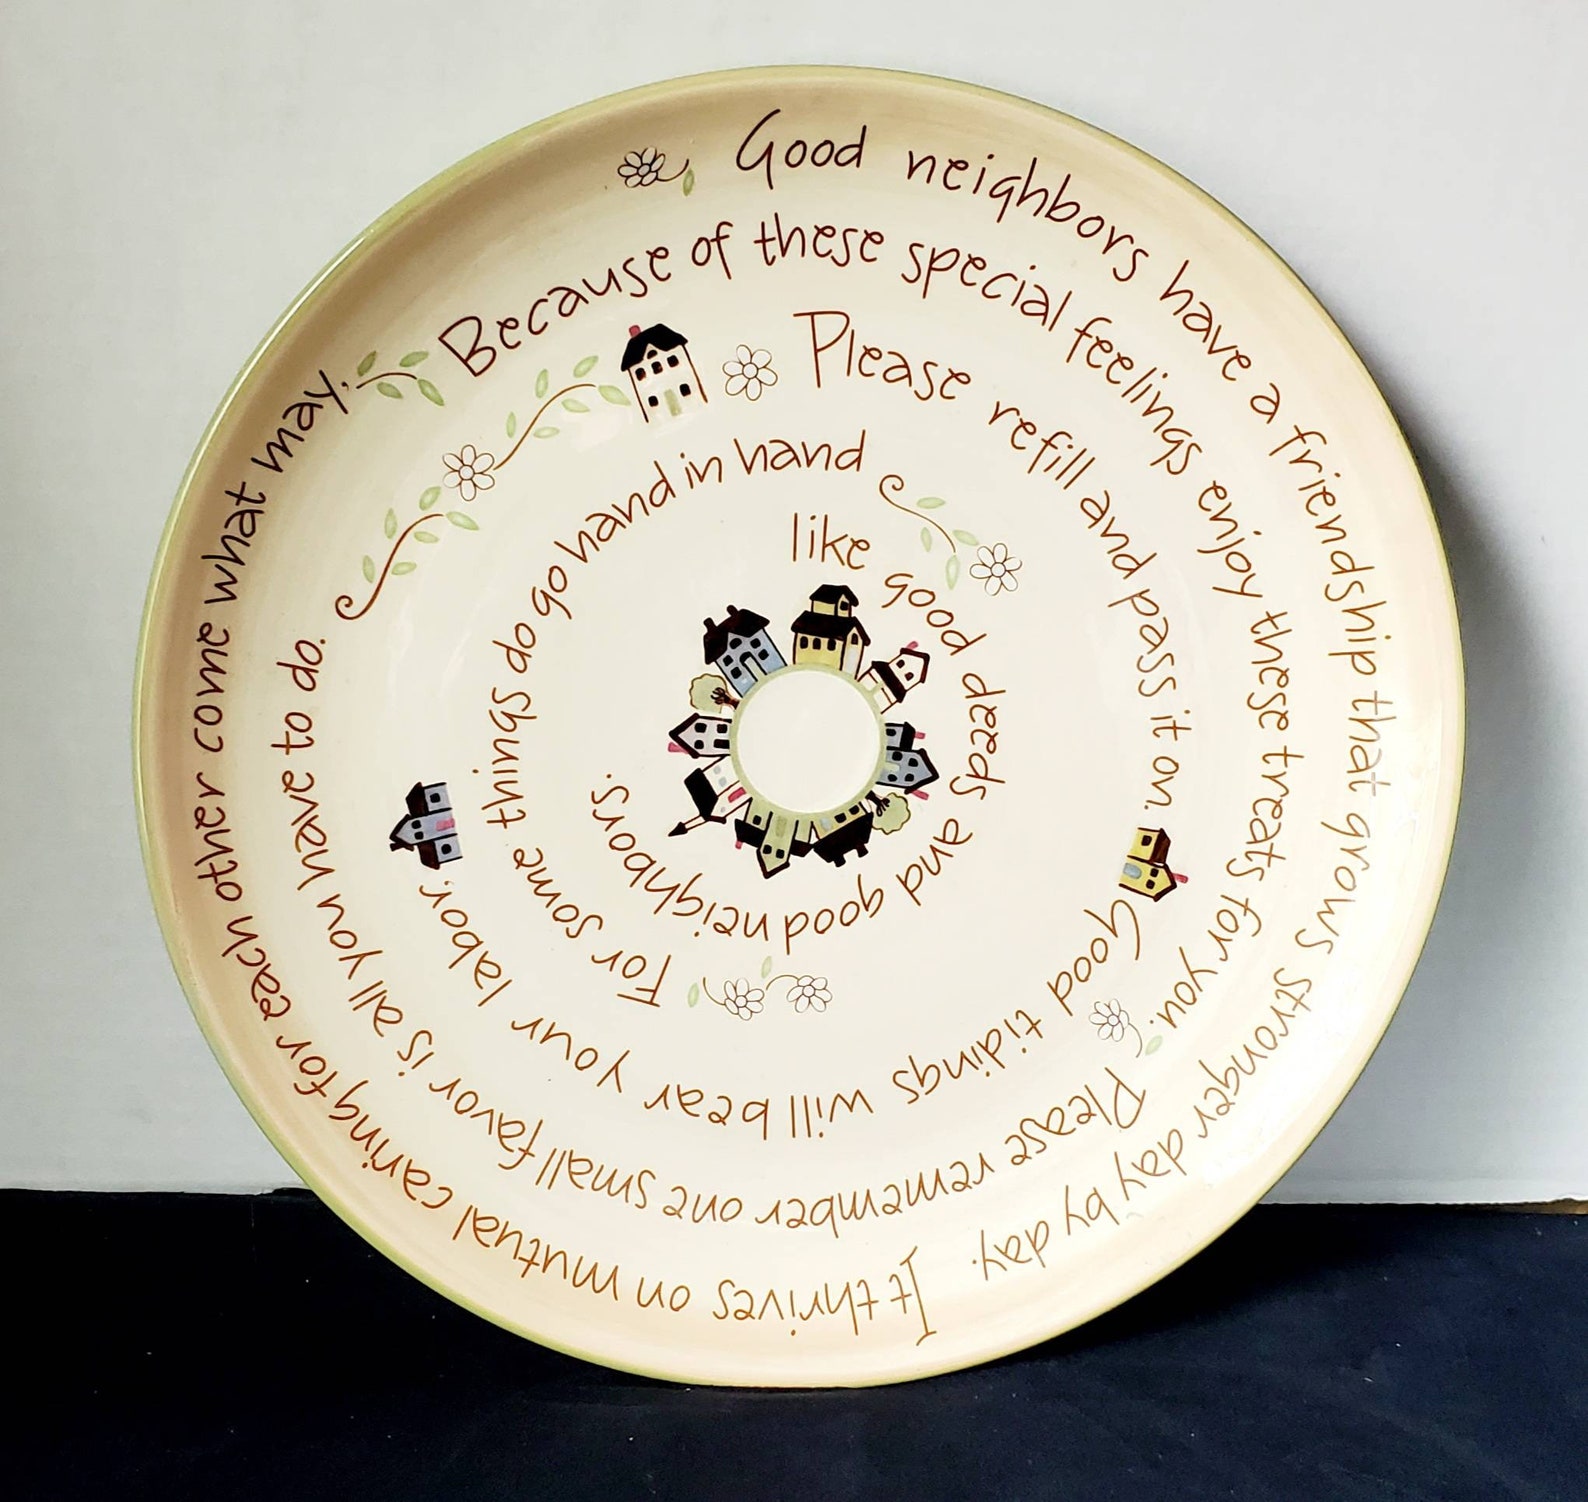 Good neighbors have a friendship that grows stronger day by day.
It thrives on mutual caring for each other come what may.
Because of these special feelings enjoy these treats for you.
Please remember one small favor is all you have to do.
Please refill and pass it on.
Good tidings will bear your labor.
For some things do go hand in hand
like good deeds and good neighbors.